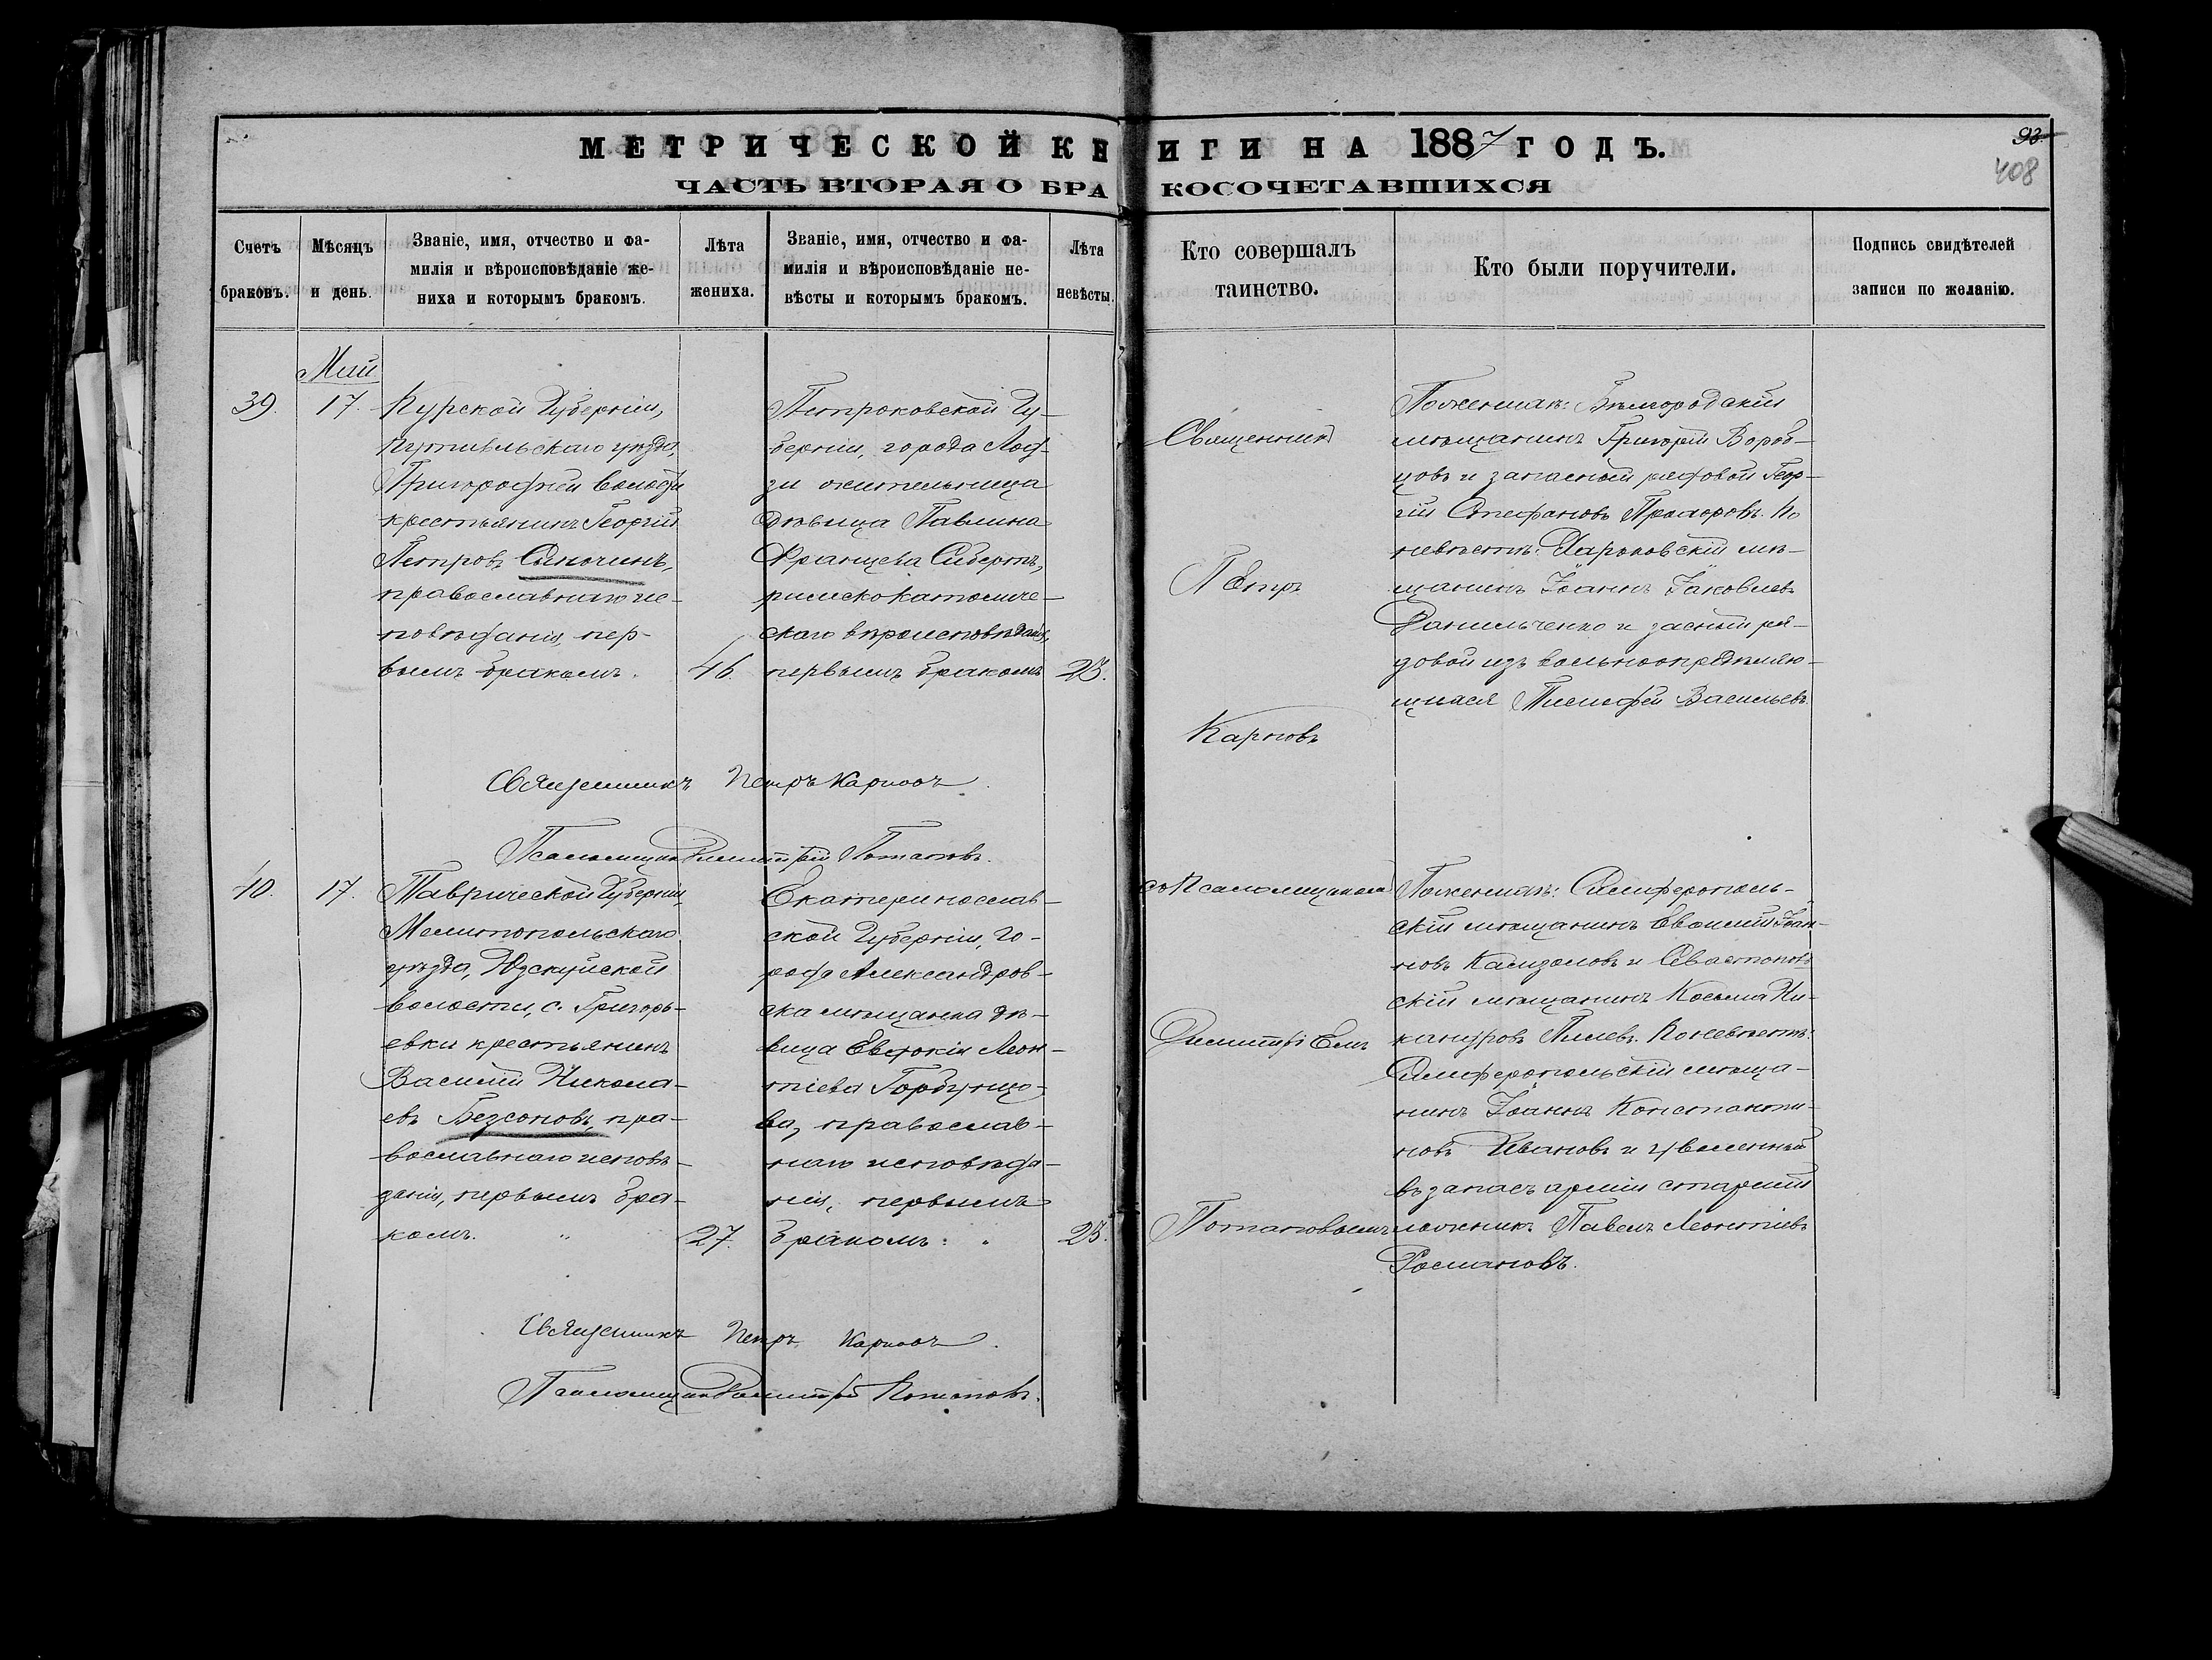 МЕТРИЧЕСКОЙ КНИГИ НА 1887 ГОДЪ.
ЧАСТЬ ВТОРАЯ О БРАКОСОЧЕТАВШИХСЯ
93
408
Счетъ браковъ.
Мѣсяцъ и день.
Званіе, имя, отчество и фа-
милія и вѣроисповѣданіе же-
ниха и которымъ бракомъ.
Лѣта жениха.
Званіе, имя, отчество и фа-
милія и вѣроисповѣданіе не-
вѣсты и которымъ бракомъ.
Лѣта невѣсты.
Кто совершалъ
таинство.
Кто были поручители.
Подпись свидѣтелей
записи по желанію.
Май
39.
17.
Курской Губерніи,
Путивльскаго уѣзда,
волости
крестьянинъ Георгій
Петровъ
православнаго ис-
повѣданія, пер-
вымъ бракомъ.
46.
Петроковской Гу-
берніи, города Лод-
зи жительница
дѣвица Павлина
Францева Сиберть,
римскокатоличе-
скаго вѣроисповѣданія,
первымъ бракомъ
23.
Священникъ
Петръ
Карповъ
По женихѣ: Бѣлгородскій
мѣщанинъ Григорій Вороб-
цовъ и запасный рядовой Геор-
гій Стефановъ По
невѣстѣ: Харьковскій мѣ-
щанинъ Іоаннъ Іаковлевъ
Данильченко и ря-
довой изъ вольноопредѣляю-
щихся Тимофей Васильевъ.
Священникъ Петръ Карповъ
Псаломщикъ Димитрій Потаповъ.
40.
17.
Таврической Губерніи,
Мелитопольскаго
уѣзда, Юзкуйской
волости, с. Григорь-
евки крестьянинъ
Василій Никола-
евъ Безсоновъ, пра-
вославнаго исповѣ-
данія, первымъ бра-
комъ.
27.
Екатеринослав-
ской Губерніи, го-
рода Александров-
ска мѣщанка дѣ-
вица Евдокія Леон-
тіева Горбунцо-
ва, православ-
наго исповѣда-
нія, первымъ
бракомъ.
23.
со Псаломщикомъ
Димитріемъ
Потаповымъ
По женихѣ: Симферополь-
скій мѣщанинъ Евфимій Іоан-
новъ Камзоловъ и Севастополь-
скій мѣщанинъ Косьма Ни-
кандровъ По невѣстѣ:
Симферопольскій мѣща-
нинъ Іоаннъ Константи-
новъ Ивановъ и уволенный
въ запасъ арміи старшій
Павелъ Леонтіевъ
Росмановъ.
Священникъ Петръ Карповъ
Псаломщикъ Димитрій Потаповъ.